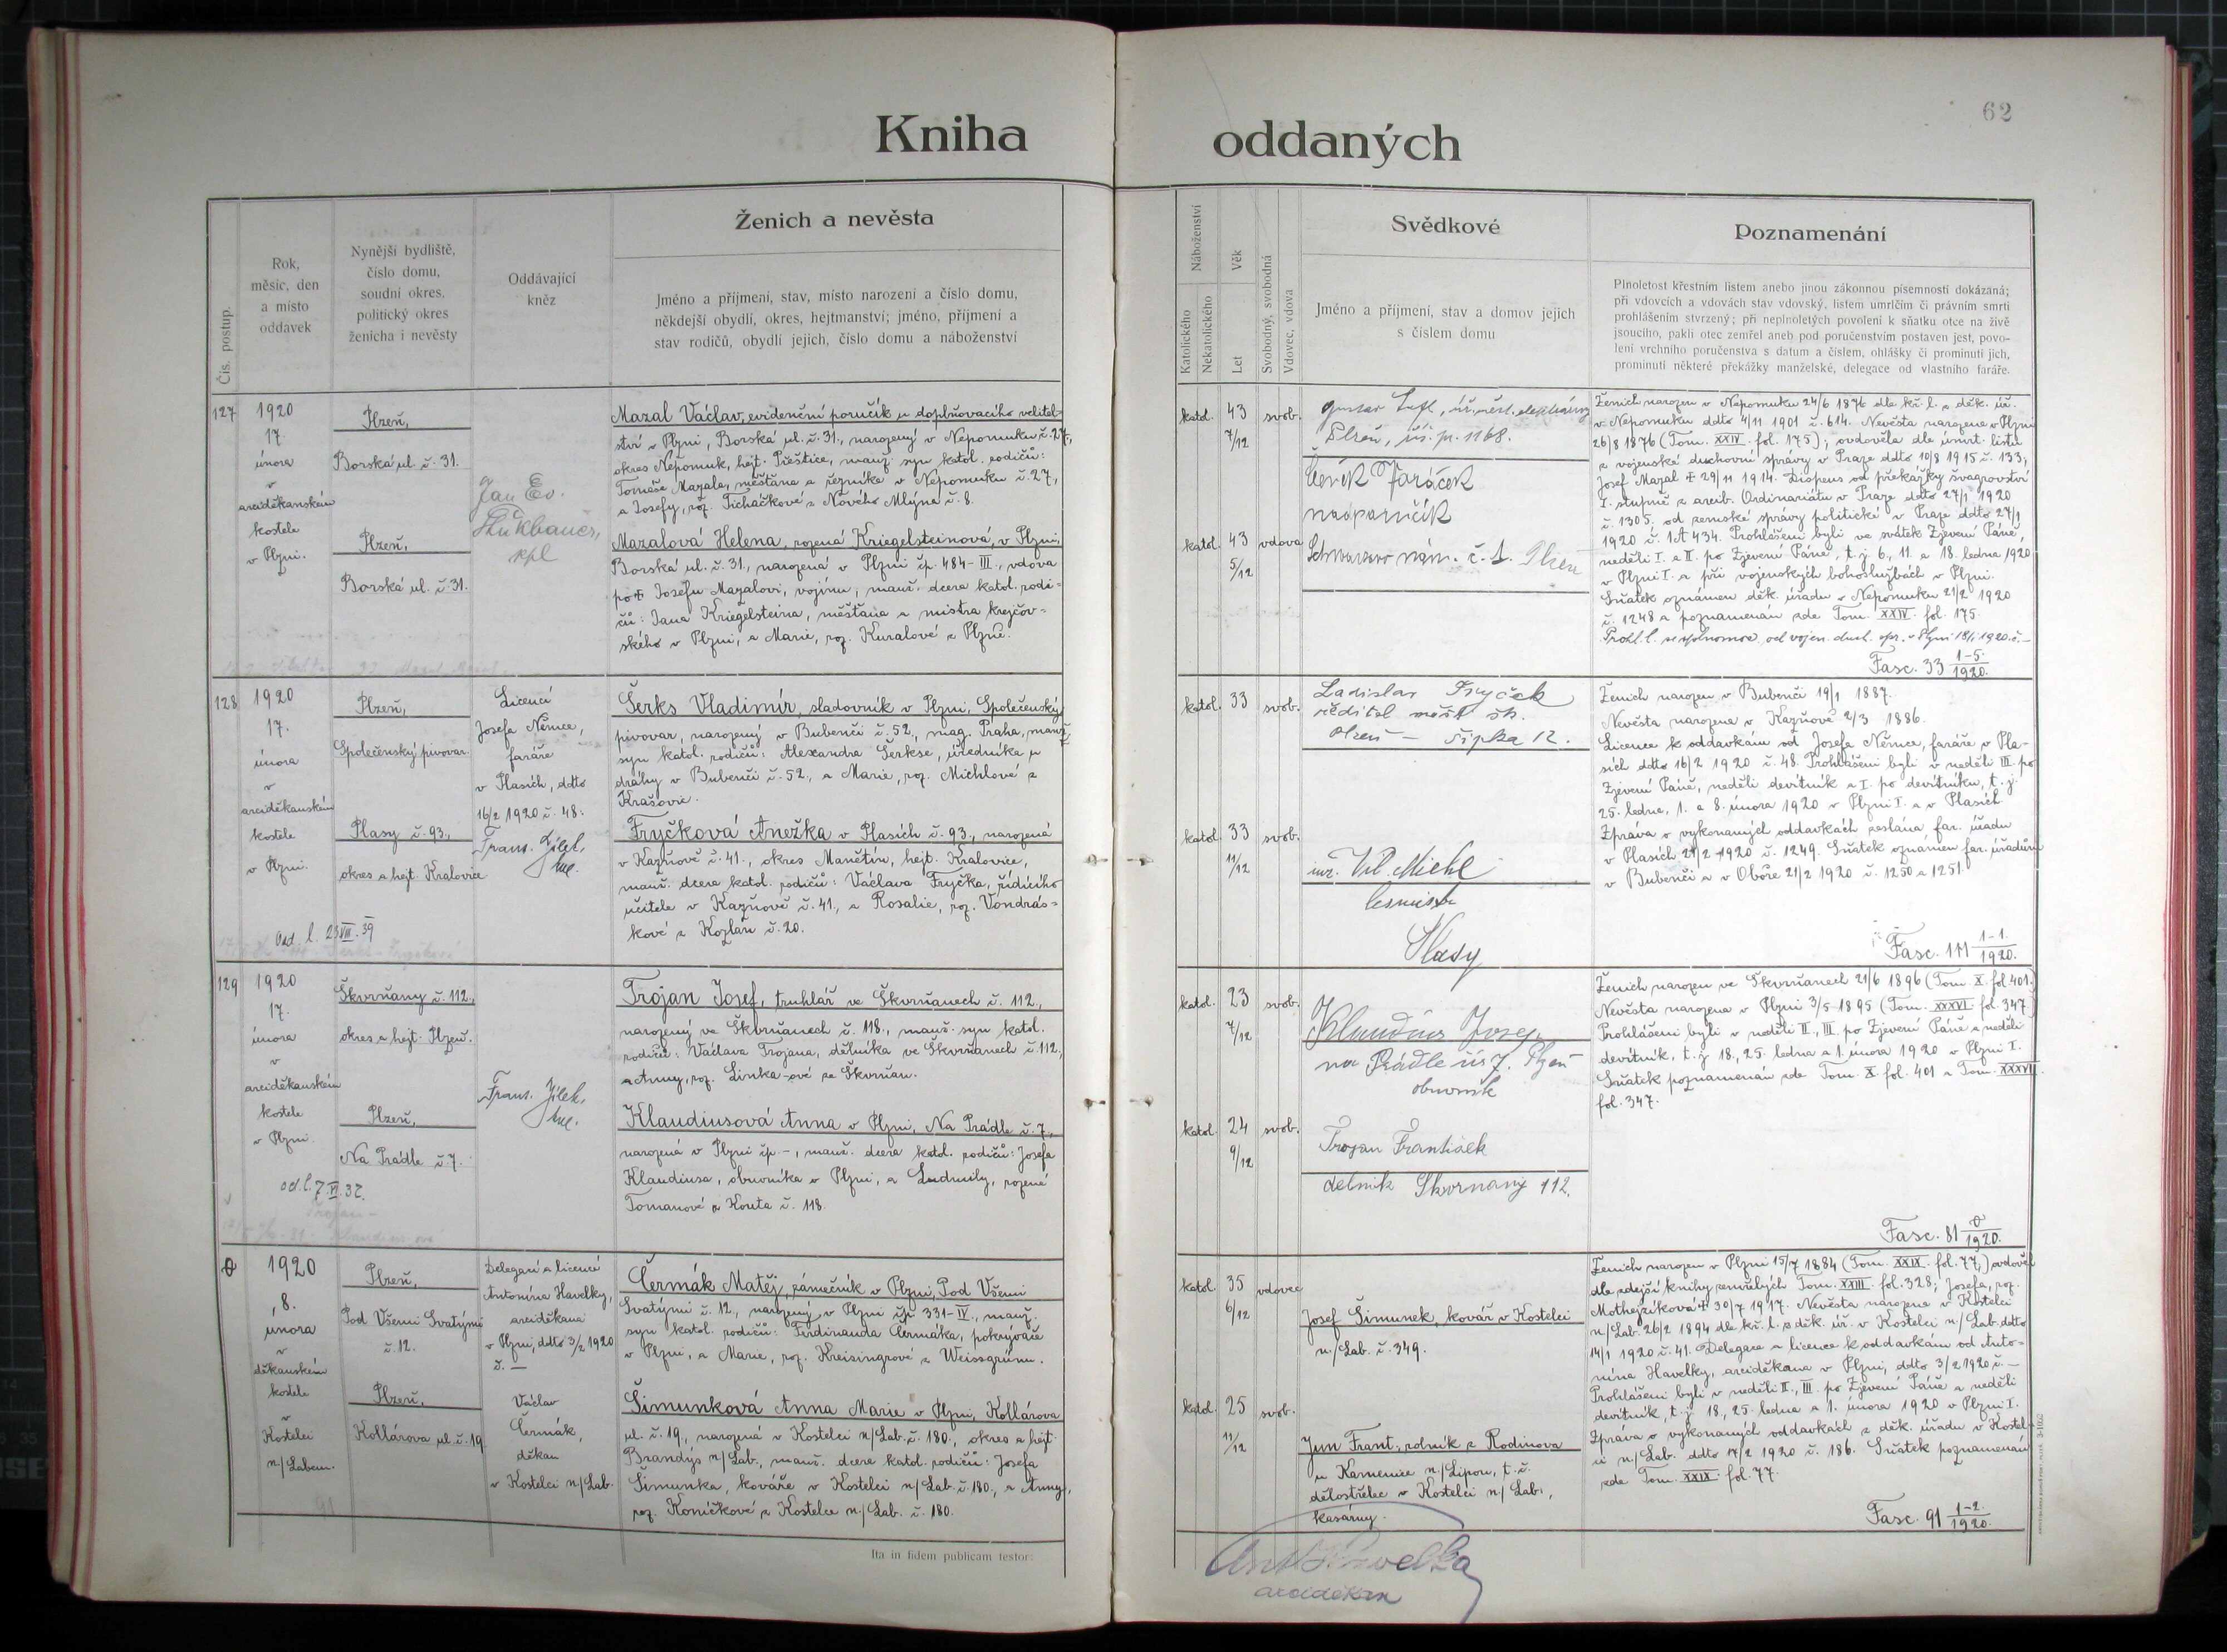 62
Kniha oddaných
Čís. postup.
Rok,
měsíc, den
a místo
oddavek
Nynější bydliště,
číslo domu,
soudní okres,
politický okres
ženicha i nevěsty
Oddávající
kněz
Ženich a nevěsta
Jméno a příjmení, stav, místo narození a číslo domu,
někdejší obydlí, okres, hejtmanství; jméno, příjmení a
stav rodičů, obydlí jejich, číslo domu a náboženství
Náboženství
Katolického
Nekatolického
Věk
Let
Svobodný, svobodná
Vdovec, vdova
Svědkové
Jméno a příjmení, stav a domov jejich
s číslem domu
Poznamenání
Plnoletost křestním listem anebo jinou zákonnou písemností dokázaná;
při vdovcích a vdovách stav vdovský, listem úmrlčím či právním smrti
prohlášením stvrzený; při neplnoletých povolení k sňatku otce na živě
jsoucího, pakli otec zemřel aneb pod poručenstvím postaven jest, povo-
lení vrchního poručenstva s datum a číslem, ohlášky či prominutí jich,
prominutí některé překážky manželské, delegace od vlastního faráře.
127
1920
17.
února
v
arciděkanském
kostele
v Plzni.
Plzeň,
Borská ul. č. 31.
Plzeň,
Borská ul. č. 31.
Jan Ev.
kpl
Mazal Václav, evidenční poručík u doplňovacího velitel-
ství v Plzni, Borská ul. č. 31., narozený v Nepomuku č. 27,
okres Nepomuk, hejt. Přeštice, manž. syn katol. rodičů:
Tomáše Mazala, měšťana a řezníka v Nepomuku č. 27,
a Josefy, roz. Ticháčkové z Nového Mlýna č. 8.
Mazalová Helena, rozená Kriegelsteinová, v Plzni,
Borská ul. č. 31., narozená v Plzni čp. 484-III., vdova
po † Josefu Mazalovi, vojínu, manž. dcera katol. rodi-
čů: Jana Kriegelsteina, měšťana a mistra krejčov-
ského v Plzni, a Marie, roz. Kuralové z Plzně.
katol. 43 7/12 svob.
katol. 43 5/12 vdova
Gustav
Plzeň, čís. p. 1168.
Čeněk Faráček
nadporučík
Schwarzovo nám. č. 1. Plzeň
Ženich narozen v Nepomuku 24/6 1876 dle kř. l. z děk. úř.
v Nepomuku ddto 4/11 1901 č. 614. Nevěsta narozena v Plzni
26/8 1876 (Tom. XXIV. fol. 175); ovdověla dle úmrt. listu
z vojenské duchovní správy v Praze ddto 10/8 1915 č. 133;
Josef Mazal † 29/11 1914. Dispens od překážky švagrovství
I. stupně z arcib. Ordinariátu v Praze ddto 27/1 1920
č. 1305, od zemské správy politické v Praze ddto 27/1
1920 č. 1A 434. Prohlášení byli ve svátek Zjevení Páně,
neděli I. a II. po Zjevení Páně, t. j. 6., 11. a 18. ledna 1920
v Plzni I. a při vojenských bohoslužbách v Plzni.
Sňatek oznámen děk. úřadu v Nepomuku 21/2 1920
č. 1248 a poznamenán zde Tom. XXIV. fol. 175.
Fasc. 33 1-5./1920.
128
1920
17.
února
v
arciděkanském
kostele
v Plzni.
Plzeň,
Společenský pivovar.
Plasy č. 93.,
okres a hejt. Kralovice
Licencí
Josefa Němce,
faráře
v Plasích, ddto
16/2 1920 č. 48:
Frant. Jílek,
Šerks Vladimír, sladovník v Plzni, Společenský
pivovar, narozený v Bubenči č. 52., mag. Praha, manž.
syn katol. rodičů: Alexandra Šerkse, úředníka u
dráhy v Bubenči č. 52., a Marie, roz. Michlové z
Krašovic.
Fryčková Anežka v Plasích č. 93., narozená
v Kaznově č. 41., okres Manětín, hejt. Kralovice,
manž. dcera katol. rodičů: Václava Fryčka, řídícího
učitele v Kaznově č. 41., a Rosalie, roz. Vondráš-
kové z Kozlan č. 20.
Odd. l. 23/VIII. 39
katol. 33 svob.
katol. 33 11/12 svob.
Ladislav Fryček
ředitel měšť. šk.
Plzeň – Šipka 12.
Vil. Michl
Plasy
Ženich narozen v Bubenči 19/1 1887.
Nevěsta narozena v Kaznově 2/3 1886.
Licence k oddavkám od Josefa Němce, faráře v Pla-
sích ddto 16/2 1920 č. 48. Prohlášeni byli v neděli III. po
Zjevení Páně, neděli devítník a I. po devítníku, t. j.
25. ledna, 1. a 8. února 1920 v Plzni I. a v Plasích.
Zpráva o vykonaných oddavkách zaslána far. úřadu
v Plasích 21/2 1920 č. 1249. Sňatek oznámen far. úřadům
v Bubenči a v Oboře 21/2 1920 č. 1250 a 1251.
Fasc. 111 1-1./1920.
129
1920
17.
února
v
arciděkanském
kostele
v Plzni.
Škvrňany č. 112.,
okres a hejt. Plzeň.
Plzeň,
Na Prádle č. 7.
od. l. 7.VI.37.
Frant. Jílek,
Trojan Josef, truhlář ve Škvrňanech č. 112.,
narozený ve Škvrňanech č. 118., manž. syn katol.
rodičů: Václava Trojana, dělníka ve Škvrňanech č. 112.,
a Anny, roz. Linka-ové ze Škvrňan.
Klaudiusová Anna v Plzni, Na Prádle č. 7.,
narozená v Plzni čp. –, manž. dcera katol. rodičů: Josefa
Klaudiusa, obuvníka v Plzni, a Ludmily, rozené
Tomanové z Kouta č. 118.
katol. 23 7/12 svob.
katol. 24 9/12 svob.
Klaudius Josef
na Prádle čís 7. Plzeň
obuvník
Trojan František
dělník Škvrnany 112.
Ženich narozen ve Škvrňanech 21/6 1896 (Tom. X. fol. 401.)
Nevěsta narozena v Plzni 3/5 1895 (Tom. XXXVI. fol. 347.)
Prohlášeni byli v neděli II., III. po Zjevení Páně a neděli
devítník, t. j. 18., 25. ledna a 1. února 1920 v Plzni I.
Sňatek poznamenán zde Tom. X. fol. 401 a Tom. XXXVI.
fol. 347.
Fasc. 81 0/1920.
0
1920
8.
února
v
děkanském
kostele
v
Kostelci
n./Labem.
Plzeň,
Pod Všemi Svatými
č. 12.
Plzeň,
Kollárova ul. č. 19.
Delegací a licencí
Antonína Havelky,
arciděkana
v Plzni, ddto 3/2 1920
č. —
Václav
Čermák,
děkan
v Kostelci n/Lab.
Čermák Matěj, zámečník v Plzni, Pod Všemi
Svatými č. 12., narozený v Plzni čp. 331-IV., manž.
syn katol. rodičů: Ferdinanda Čermáka, pokrývače
v Plzni, a Marie, roz. Kreisingrové z Weissgrünu.
Šimunková Anna Marie v Plzni, Kollárova
ul. č. 19., narozená v Kostelci n/Lab. č. 180., okres a hejt.
Brandýs n/Lab., manž. dcera katol. rodičů: Josefa
Šimunka, kováře v Kostelci n/Lab. č. 180., a Anny,
roz. Koníčkové z Kostelce n./Lab. č. 180.
katol. 35 6/12 vdovec
katol. 25 11/12 svob.
Josef Šimunek, kovář v Kostelci
n./Lab. č. 349.
Jun Frant., rolník z Rodinova
u Kamenice n./Lipou, t. č.
dělostřelec v Kostelci n/Lab.,
kasárny.
Ženich narozen v Plzni 15/7 1884 (Tom. XXIX. fol. 77,) ovdověl
dle zdejší knihy zemřelých Tom. XXIII. fol. 328; Josefa, roz.
Mothejzíková † 30/7 1917. Nevěsta narozena v Kostelci
n/Lab. 26/2 1894 dle kř. l. z děk. úř. v Kostelci n/Lab. ddto
14/1 1920 č. 41. Delegace a licence k oddavkám od Anto-
nína Havelky, arciděkana v Plzni, ddto 3/2 1920 č. —
Prohlášeni byli v neděli II., III. po Zjevení Páně a neděli
devítník, t. j. 18., 25. ledna a 1. února 1920 v Plzni I.
Zpráva o vykonaných oddavkách z děk. úřadu v Kostel-
ci n/Lab. ddto 17/2 1920 č. 186. Sňatek poznamenán
zde Tom. XXIX. fol. 77.
Fasc. 91 1-2./1920.
Ita in fidem publicam testor:
Ant. Havelka
arciděkan